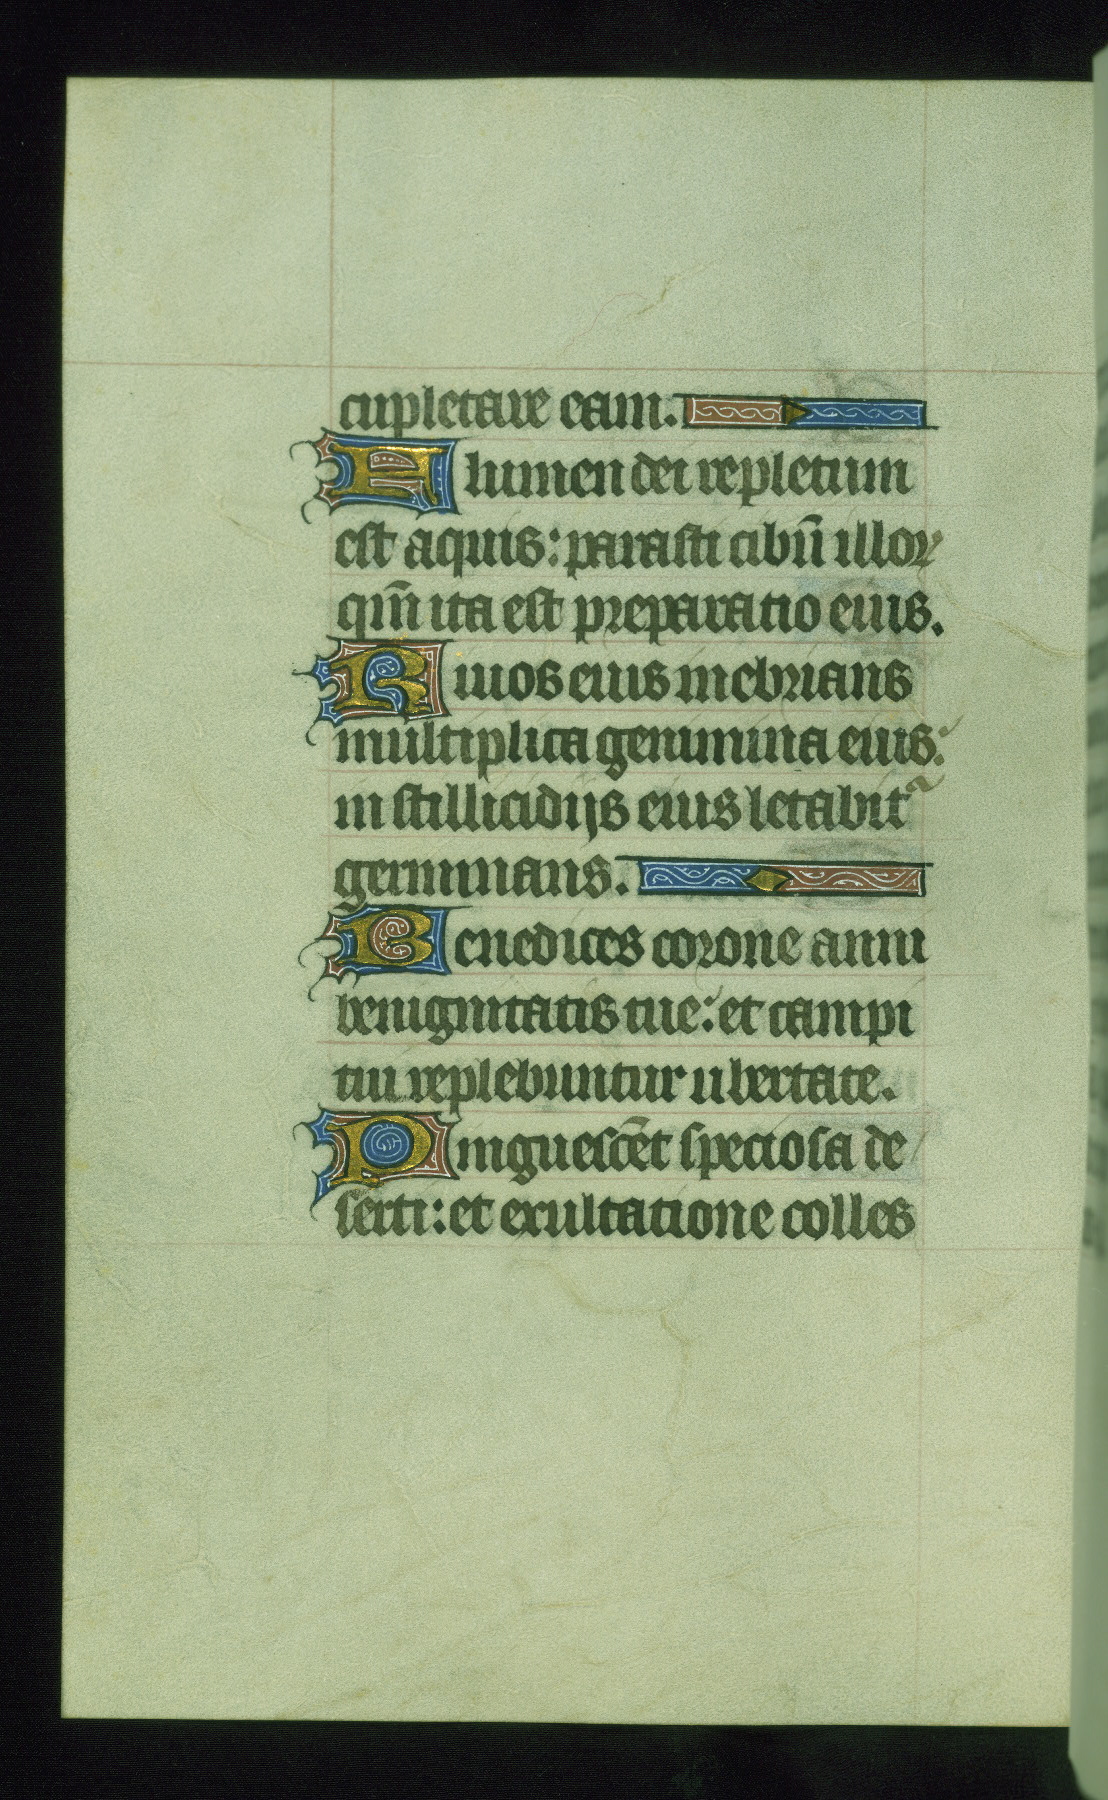 cupletare eam.
Flumen dei repletum
est aquis: parasti cibū illoꝝ
qm̄ ita est preparatio eius.
Riuos eius inebrians
multiplica genimina eius:
in stillicidijs eius letabit᷑
germinans.
Benedices corone anni
benignitatis tue: et campi
tui replebuntur ubertate.
Pinguescēt speciosa de
serti: et exultatione colles